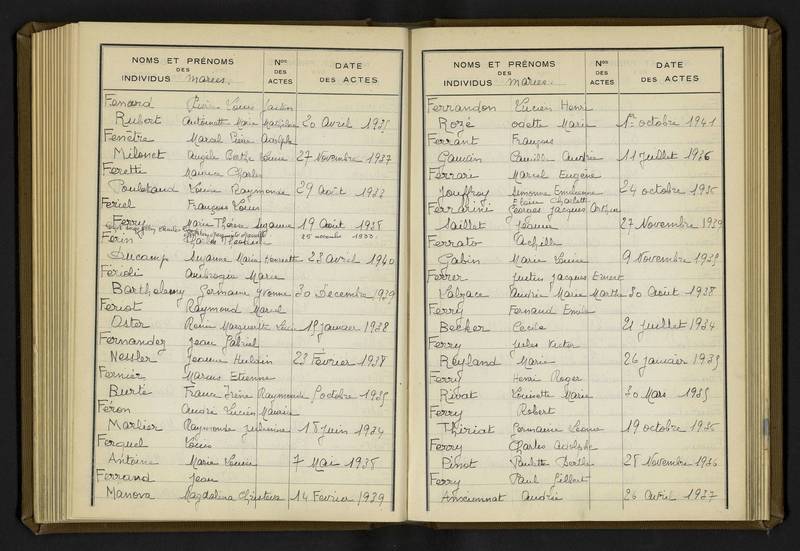 NOMS ET PRÉNOMS
DES
INDIVIDUS Mariés.
Nos
DES
ACTES
DATE
DES ACTES
Fenard Pierre Louis
Rubert Antoinette Marie 20 Avril 1935
Fenêtre Marcel Pierre Adolphe
Milonet Angèle Berthe Louise 27 Novembre 1937
Feretti Maurice Charles
Louise Raymonde 29 Août 1933
Feriel François Louis
Ferry Marie Thérèse Suzanne 19 Août 1938
25 novembre 1933
Férin Charles
Ducamp Suzanne Marie Henriette 23 Avril 1940
Férioli Ambroque Marie
Barthelemy Germaine Yvonne 30 Décembre 1939
Feriot Raymond Marcel
Oster Reine Marguerite 15 Janvier 1938
Fernandez Jean Gabriel
Nessler Jeanne 23 Février 1938
Fernier Marcus Etienne
Burté France Irène Raymonde octobre 1935
Féron André Lucien Maurice
Marlier Raymonde Julienne 18 Juin 1934
Ferquel Louis
Antoine Marie Louise 7 Mai 1938
Ferrand Jean
Manova Magdalena 14 Février 1939
NOMS ET PRÉNOMS
DES
INDIVIDUS Mariés.
Nos
DES
ACTES
DATE
DES ACTES
Ferrandon Lucien Henri
Rozé Odette Marie 1er octobre 1941
Ferrant François
Gauvin Camille Andrée 11 Juillet 1936
Ferrari Marcel Eugène
Jouffroy Simonne Emilienne 24 octobre 1936
Ferrarini Georges Jacques
Saillet Jeanne 27 Novembre 1939
Ferrato Achille
Gabin Marie Louise 9 Novembre 1935
Ferrer Justin Jacques Ernest
Valzace Andrée Marie Marthe 30 Août 1938
Ferry Fernand Emile
Becker Cécile 21 Juillet 1934
Ferry Jules Victor
Reyland Marie 26 Janvier 1935
Ferry Henri Roger
Rivat Louisette Marie 30 Mars 1935
Ferry Robert
Thiriat Germaine Léonie 19 octobre 1935
Ferry Charles Adolphe
Pinot Paulette Berthe 28 Novembre 1936
Ferry Paul Gilbert
Ansconnat Andrée 26 Avril 1937